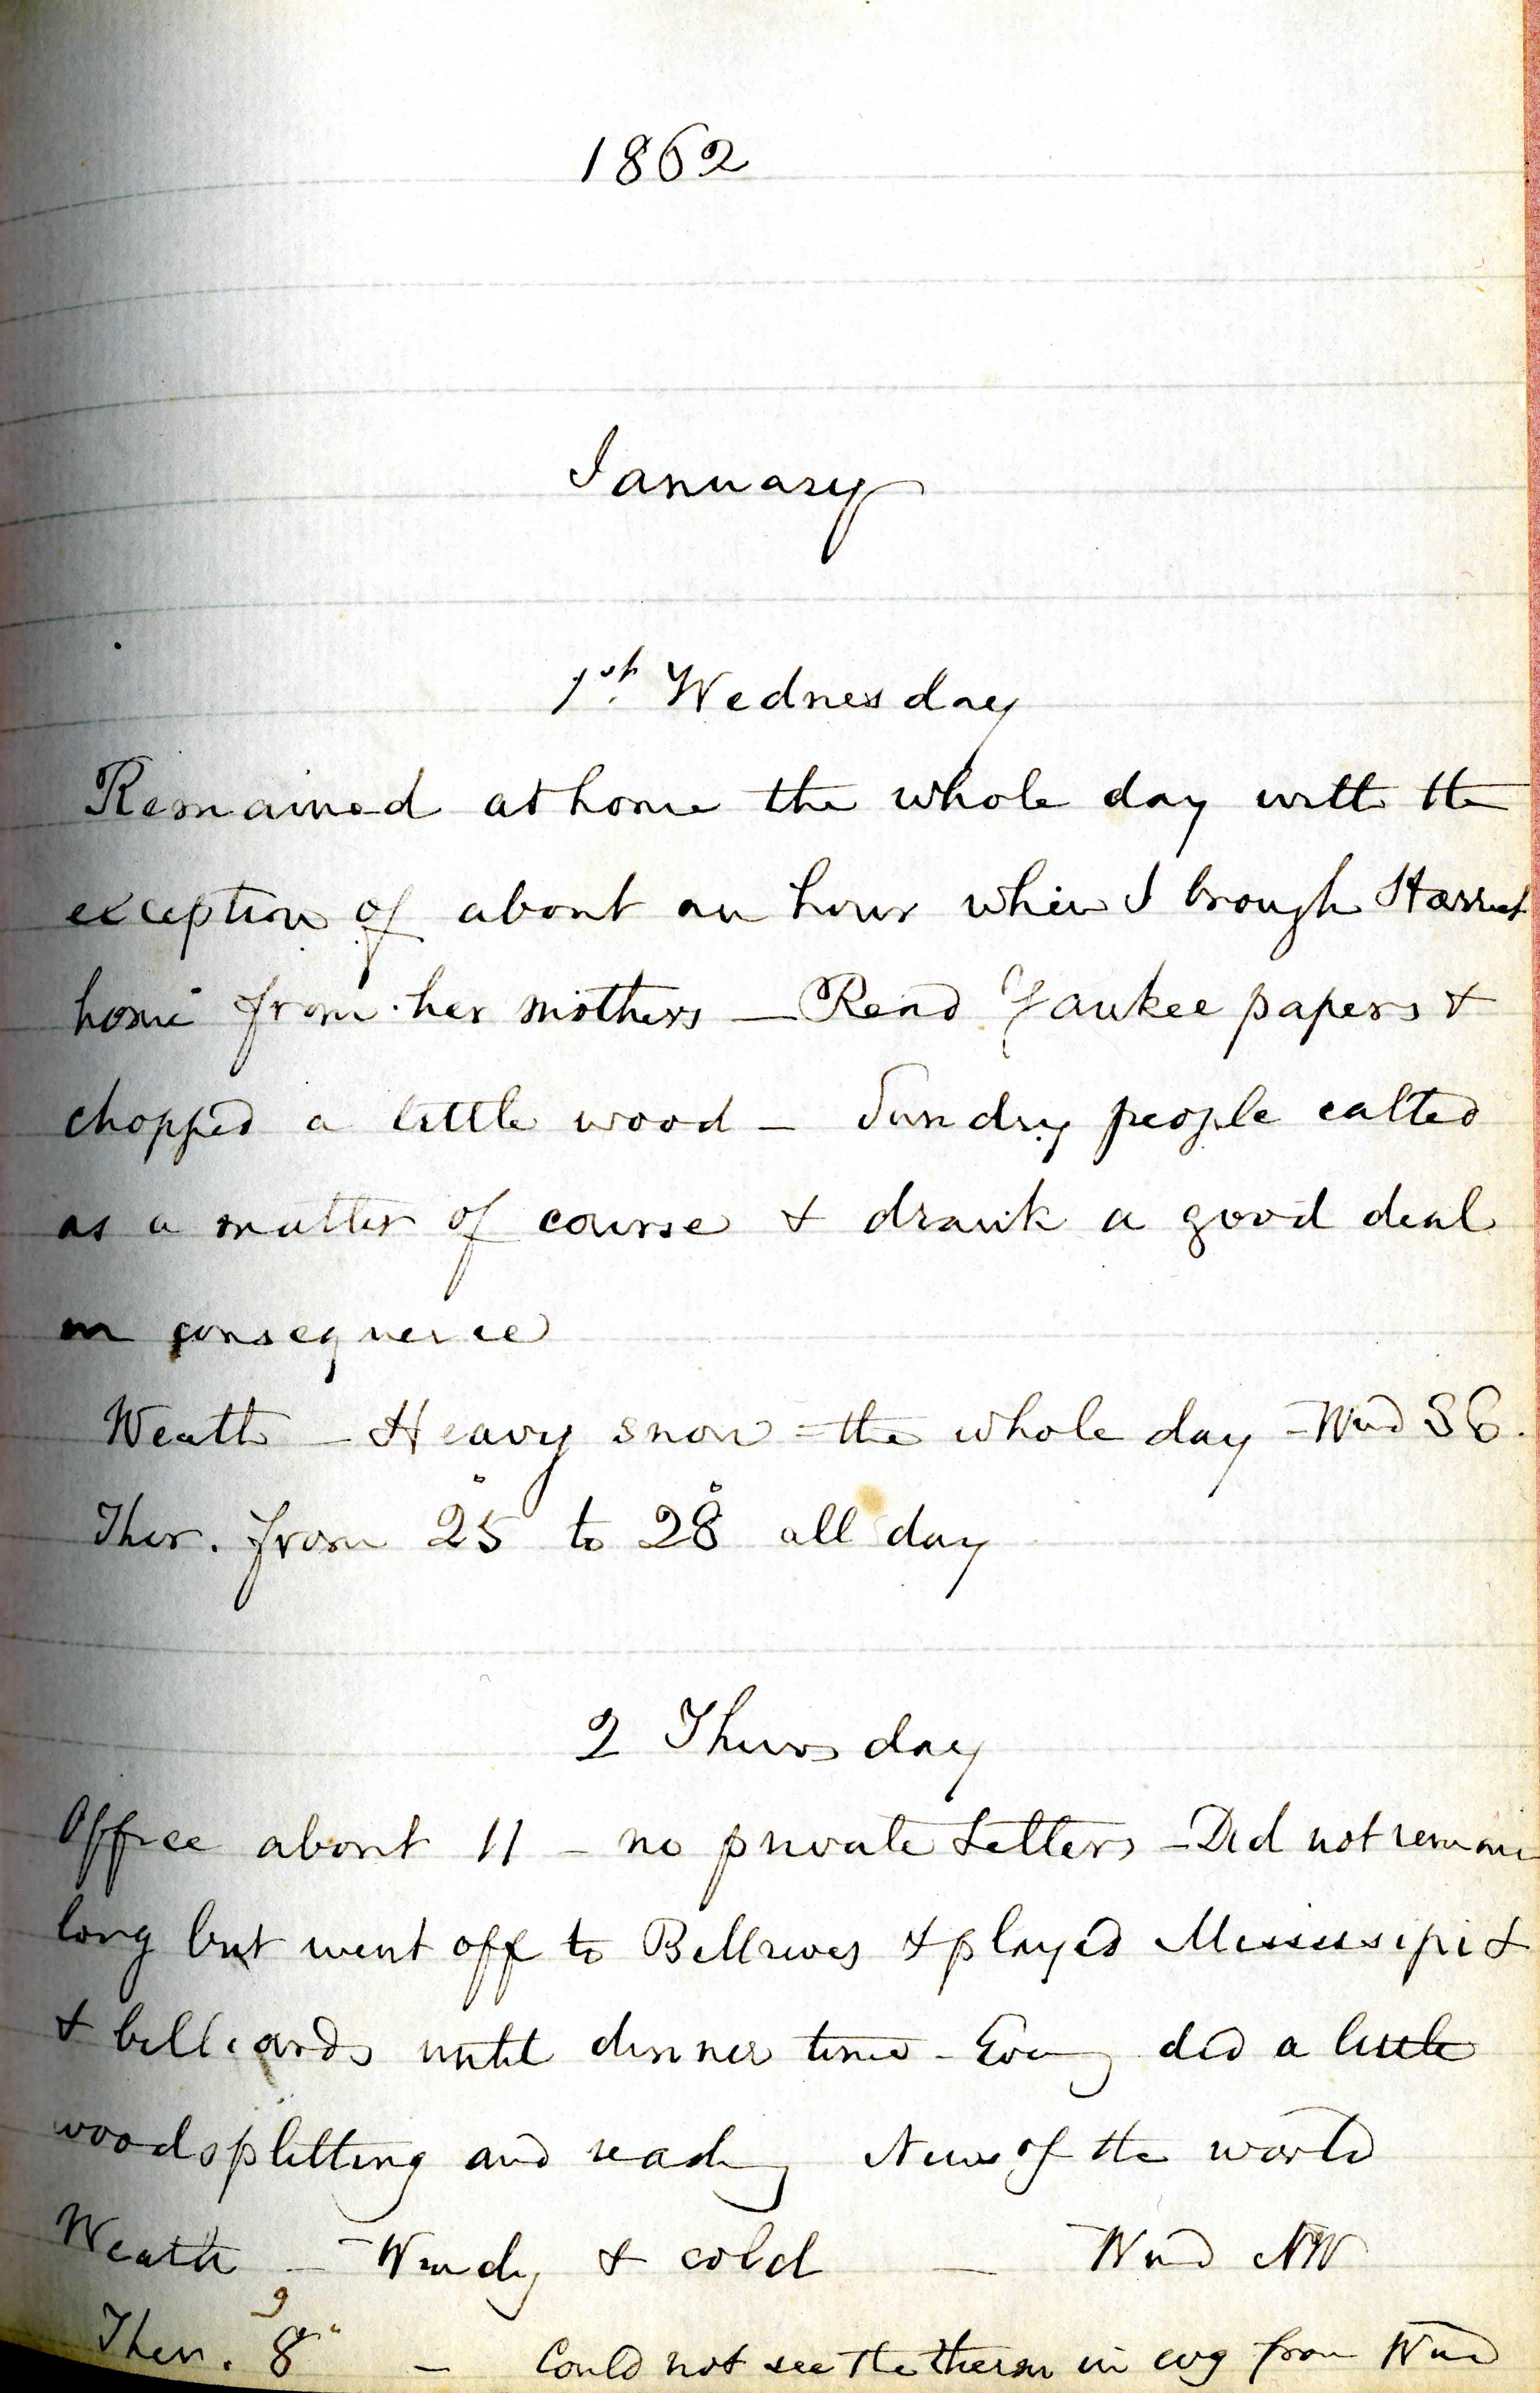 1862
January
1st. Wednesday
Remained at home the whole day with the
exception of about an hour when I brough Harriet
home from her mothers — Read Yankee papers &
chopped a little wood — Sundry people called
as a matter of course & drank a good deal
in consequence
Weath — Heavy snow — the whole day — Wind SE.
Ther. from 25° to 28° all day
2 Thursday
Office about 11 — no private Letters — Did not remain
long but went off to Bellreves & played Mississipi &
& billiards until dinner time — Eveng did a little
wood splitting and reading News of the world
Weath — Windy & cold — Wind NW
Ther. 8° — Could not see the therm in evg from Wind